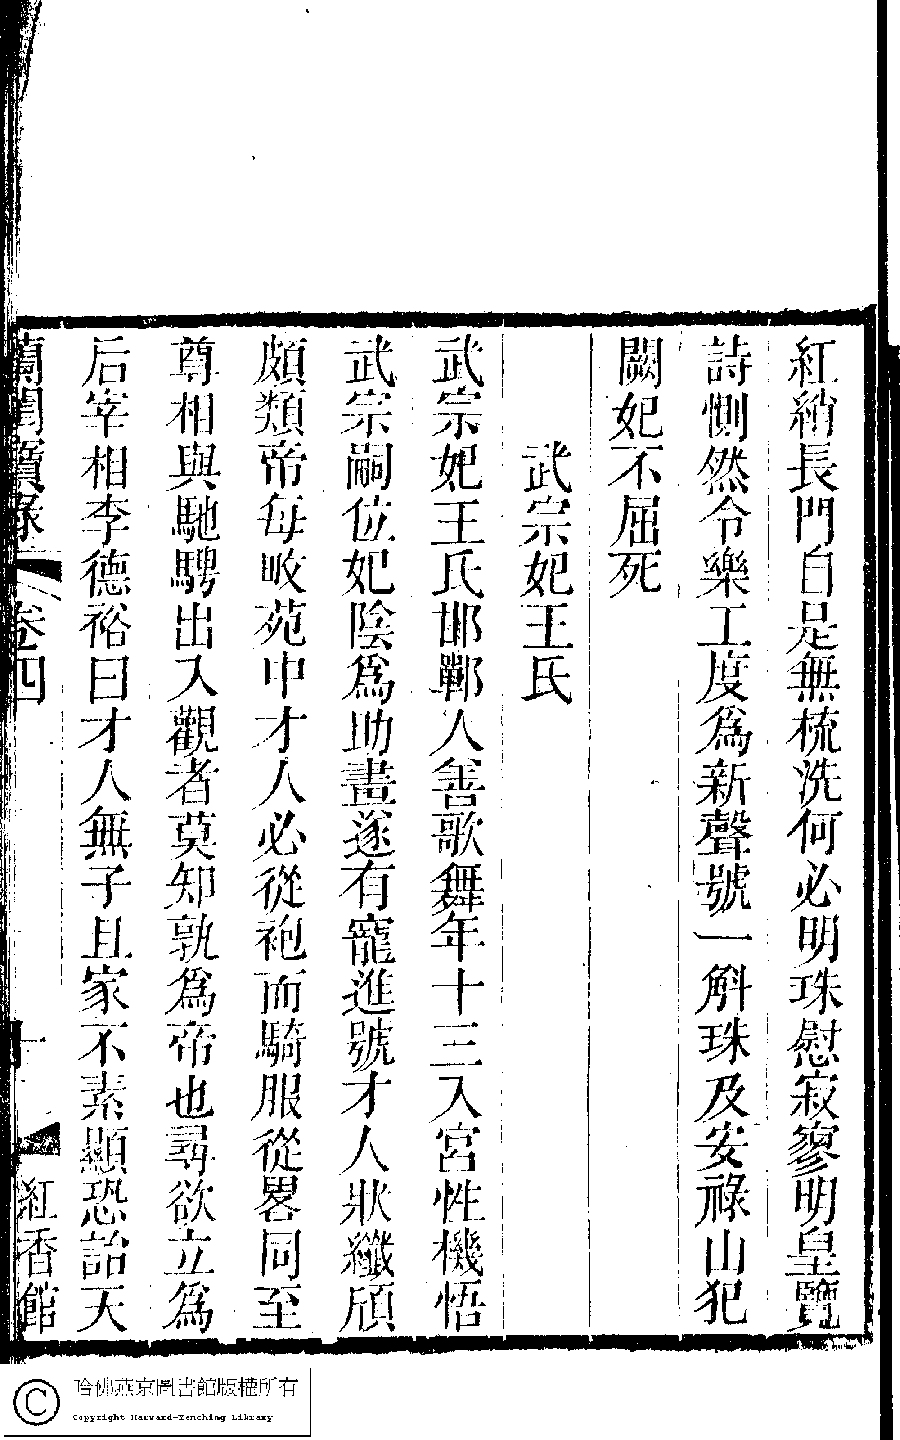 紅綃長門自是無梳洗何必明珠慰寂寥明皇覽
詩惻然令樂工度爲新聲號一斛珠及安祿山犯
闕妃不屈死
武宗妃王氏
武宗妃王氏邯鄲人善歌舞年十三入宮性機悟
武宗嗣位妃陰爲助畫遂有寵進號才人狀纖頎
頗類帝每畋苑中才人必從袍而騎服從畧同至
尊相與馳騁出入觀者莫知孰爲帝也尋欲立爲
后宰相李德裕曰才人無子且家不素顯恐詒天
蘭閨寶錄 卷四 十 紅香館
哈佛燕京圖書館版權所有
Copyright Harvard-Yenching Library